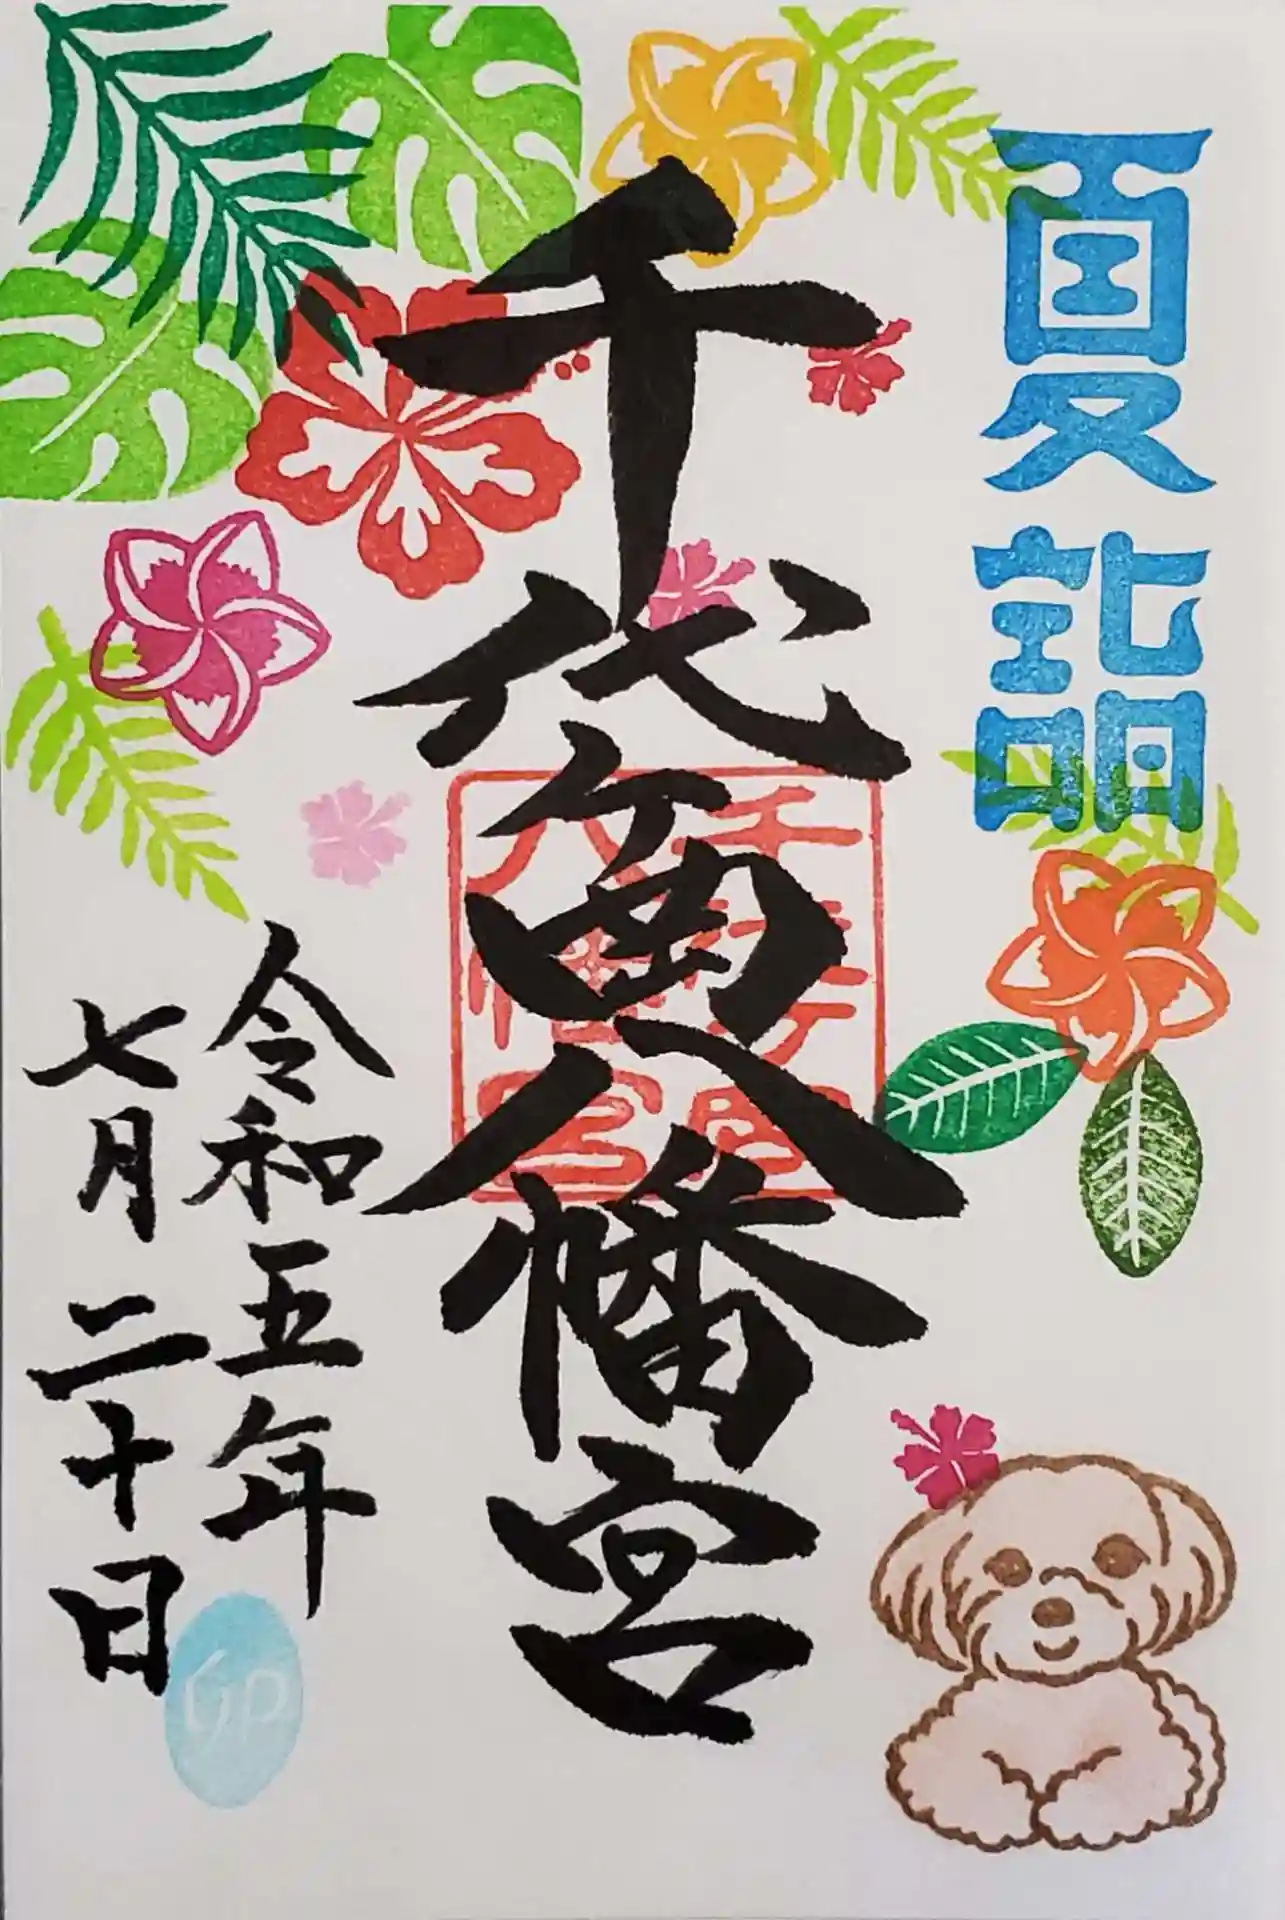 夏詣
千代ケ岡八幡宮
千代ケ岡
八幡宮
令和五年
七月二十日